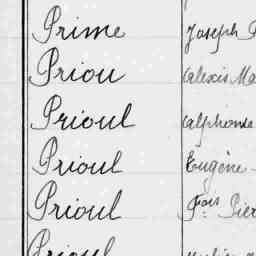 Prime Joseph
Priou Alexis Ma
Prioul Alphonse
Prioul Eugène
Prioul Fois Pier
Prioul